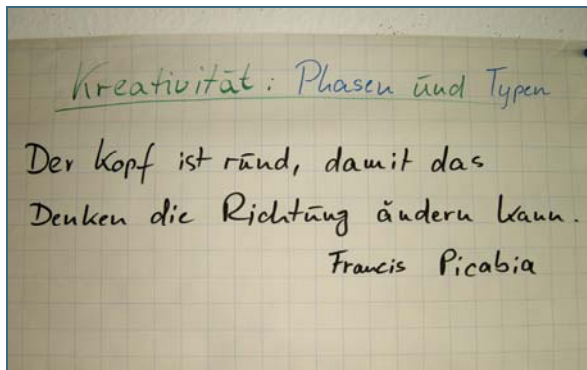 Kreativität: Phasen und Typen
Der Kopf ist rund, damit das
Denken die Richtung ändern kann.
Francis Picabia